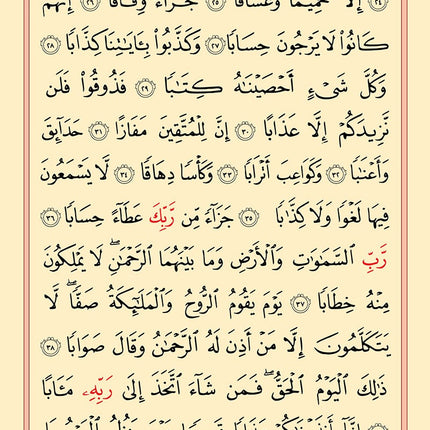 ٢٤ إِلَّا حَمِيمًا وَغَسَّاقًا ٢٥ جَزَآءً وِفَاقًا ٢٦ إِنَّهُمْ
كَانُوا۟ لَا يَرْجُونَ حِسَابًا ٢٧ وَكَذَّبُوا۟ بِـَٔايَـٰتِنَا كِذَّابًا ٢٨
وَكُلَّ شَىْءٍ أَحْصَيْنَـٰهُ كِتَـٰبًا ٢٩ فَذُوقُوا۟ فَلَن
نَّزِيدَكُمْ إِلَّا عَذَابًا ٣٠ إِنَّ لِلْمُتَّقِينَ مَفَازًا ٣١ حَدَآئِقَ
وَأَعْنَـٰبًا ٣٢ وَكَوَاعِبَ أَتْرَابًا ٣٣ وَكَأْسًا دِهَاقًا ٣٤ لَّا يَسْمَعُونَ
فِيهَا لَغْوًا وَلَا كِذَّٰبًا ٣٥ جَزَآءً مِّن رَّبِّكَ عَطَآءً حِسَابًا ٣٦
رَّبِّ ٱلسَّمَـٰوَٰتِ وَٱلْأَرْضِ وَمَا بَيْنَهُمَا ٱلرَّحْمَـٰنِ ۖ لَا يَمْلِكُونَ
مِنْهُ خِطَابًا ٣٧ يَوْمَ يَقُومُ ٱلرُّوحُ وَٱلْمَلَـٰٓئِكَةُ صَفًّا ۖ لَّا
يَتَكَلَّمُونَ إِلَّا مَنْ أَذِنَ لَهُ ٱلرَّحْمَـٰنُ وَقَالَ صَوَابًا ٣٨
ذَٰلِكَ ٱلْيَوْمُ ٱلْحَقُّ ۖ فَمَن شَآءَ ٱتَّخَذَ إِلَىٰ رَبِّهِۦ مَـَٔابًا